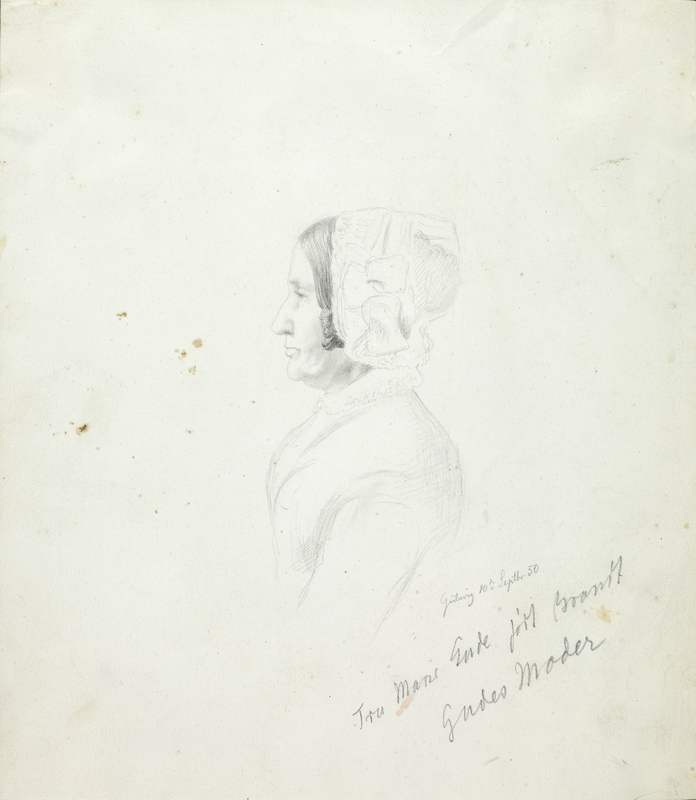 10de Septbr 50
Fru Marie Gude født Brandt
Gudes Moder